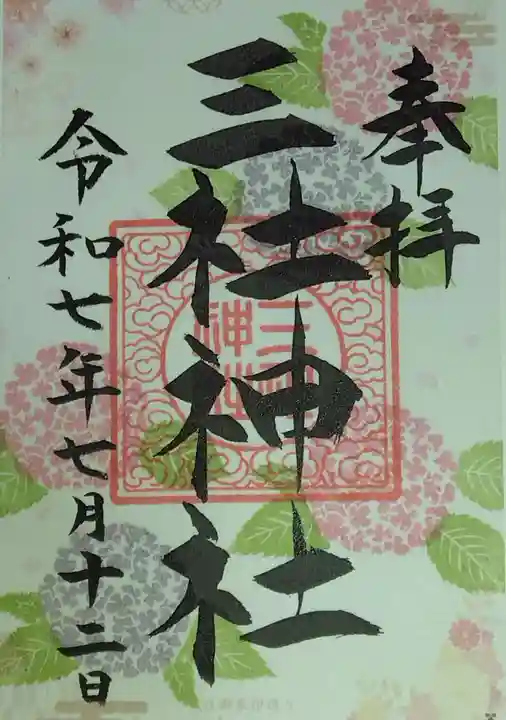 奉拝
三社神社
三社神社
令和七年七月十二日